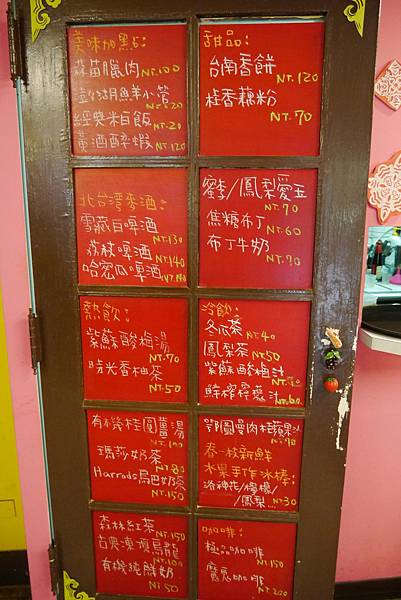 美味加點:
蒜苗臘肉 NT.100
澎湖胡魚羊小管 NT.220
經典米白飯 NT.20
黃酒醉蝦 NT.120
甜品:
台南香餅 NT.120
桂香藕粉 NT.70
北台灣麥酒:
雪藏白啤酒 NT.130
荔枝啤酒 NT.140
哈密瓜啤酒 NT.140
蜜李/鳳梨愛玉 NT.70
焦糖布丁 NT.60
布丁牛奶 NT.70
熱飲:
紫蘇酸梅湯 NT.70
時光香柚茶 NT.50
冷飲:
冬瓜茶 NT.40
鳳梨茶 NT.50
紫蘇酸梅汁
鮮榨檸檬汁 NT.60
有機桂圓薑湯 NT.100
瑪莎奶茶 NT.80
Harrods烏巴奶茶 NT.150
鄂圖曼肉桂蘋果汁 NT.90
春一枝新鮮
水果手作冰棒:
洛神花/檸檬/
/鳳梨... NT.30
森林紅茶 NT.150
古典凍頂烏龍 NT.100
有機純鮮奶 NT.50
咖啡:
極品咖啡 NT.150
魔鬼咖啡 NT.200